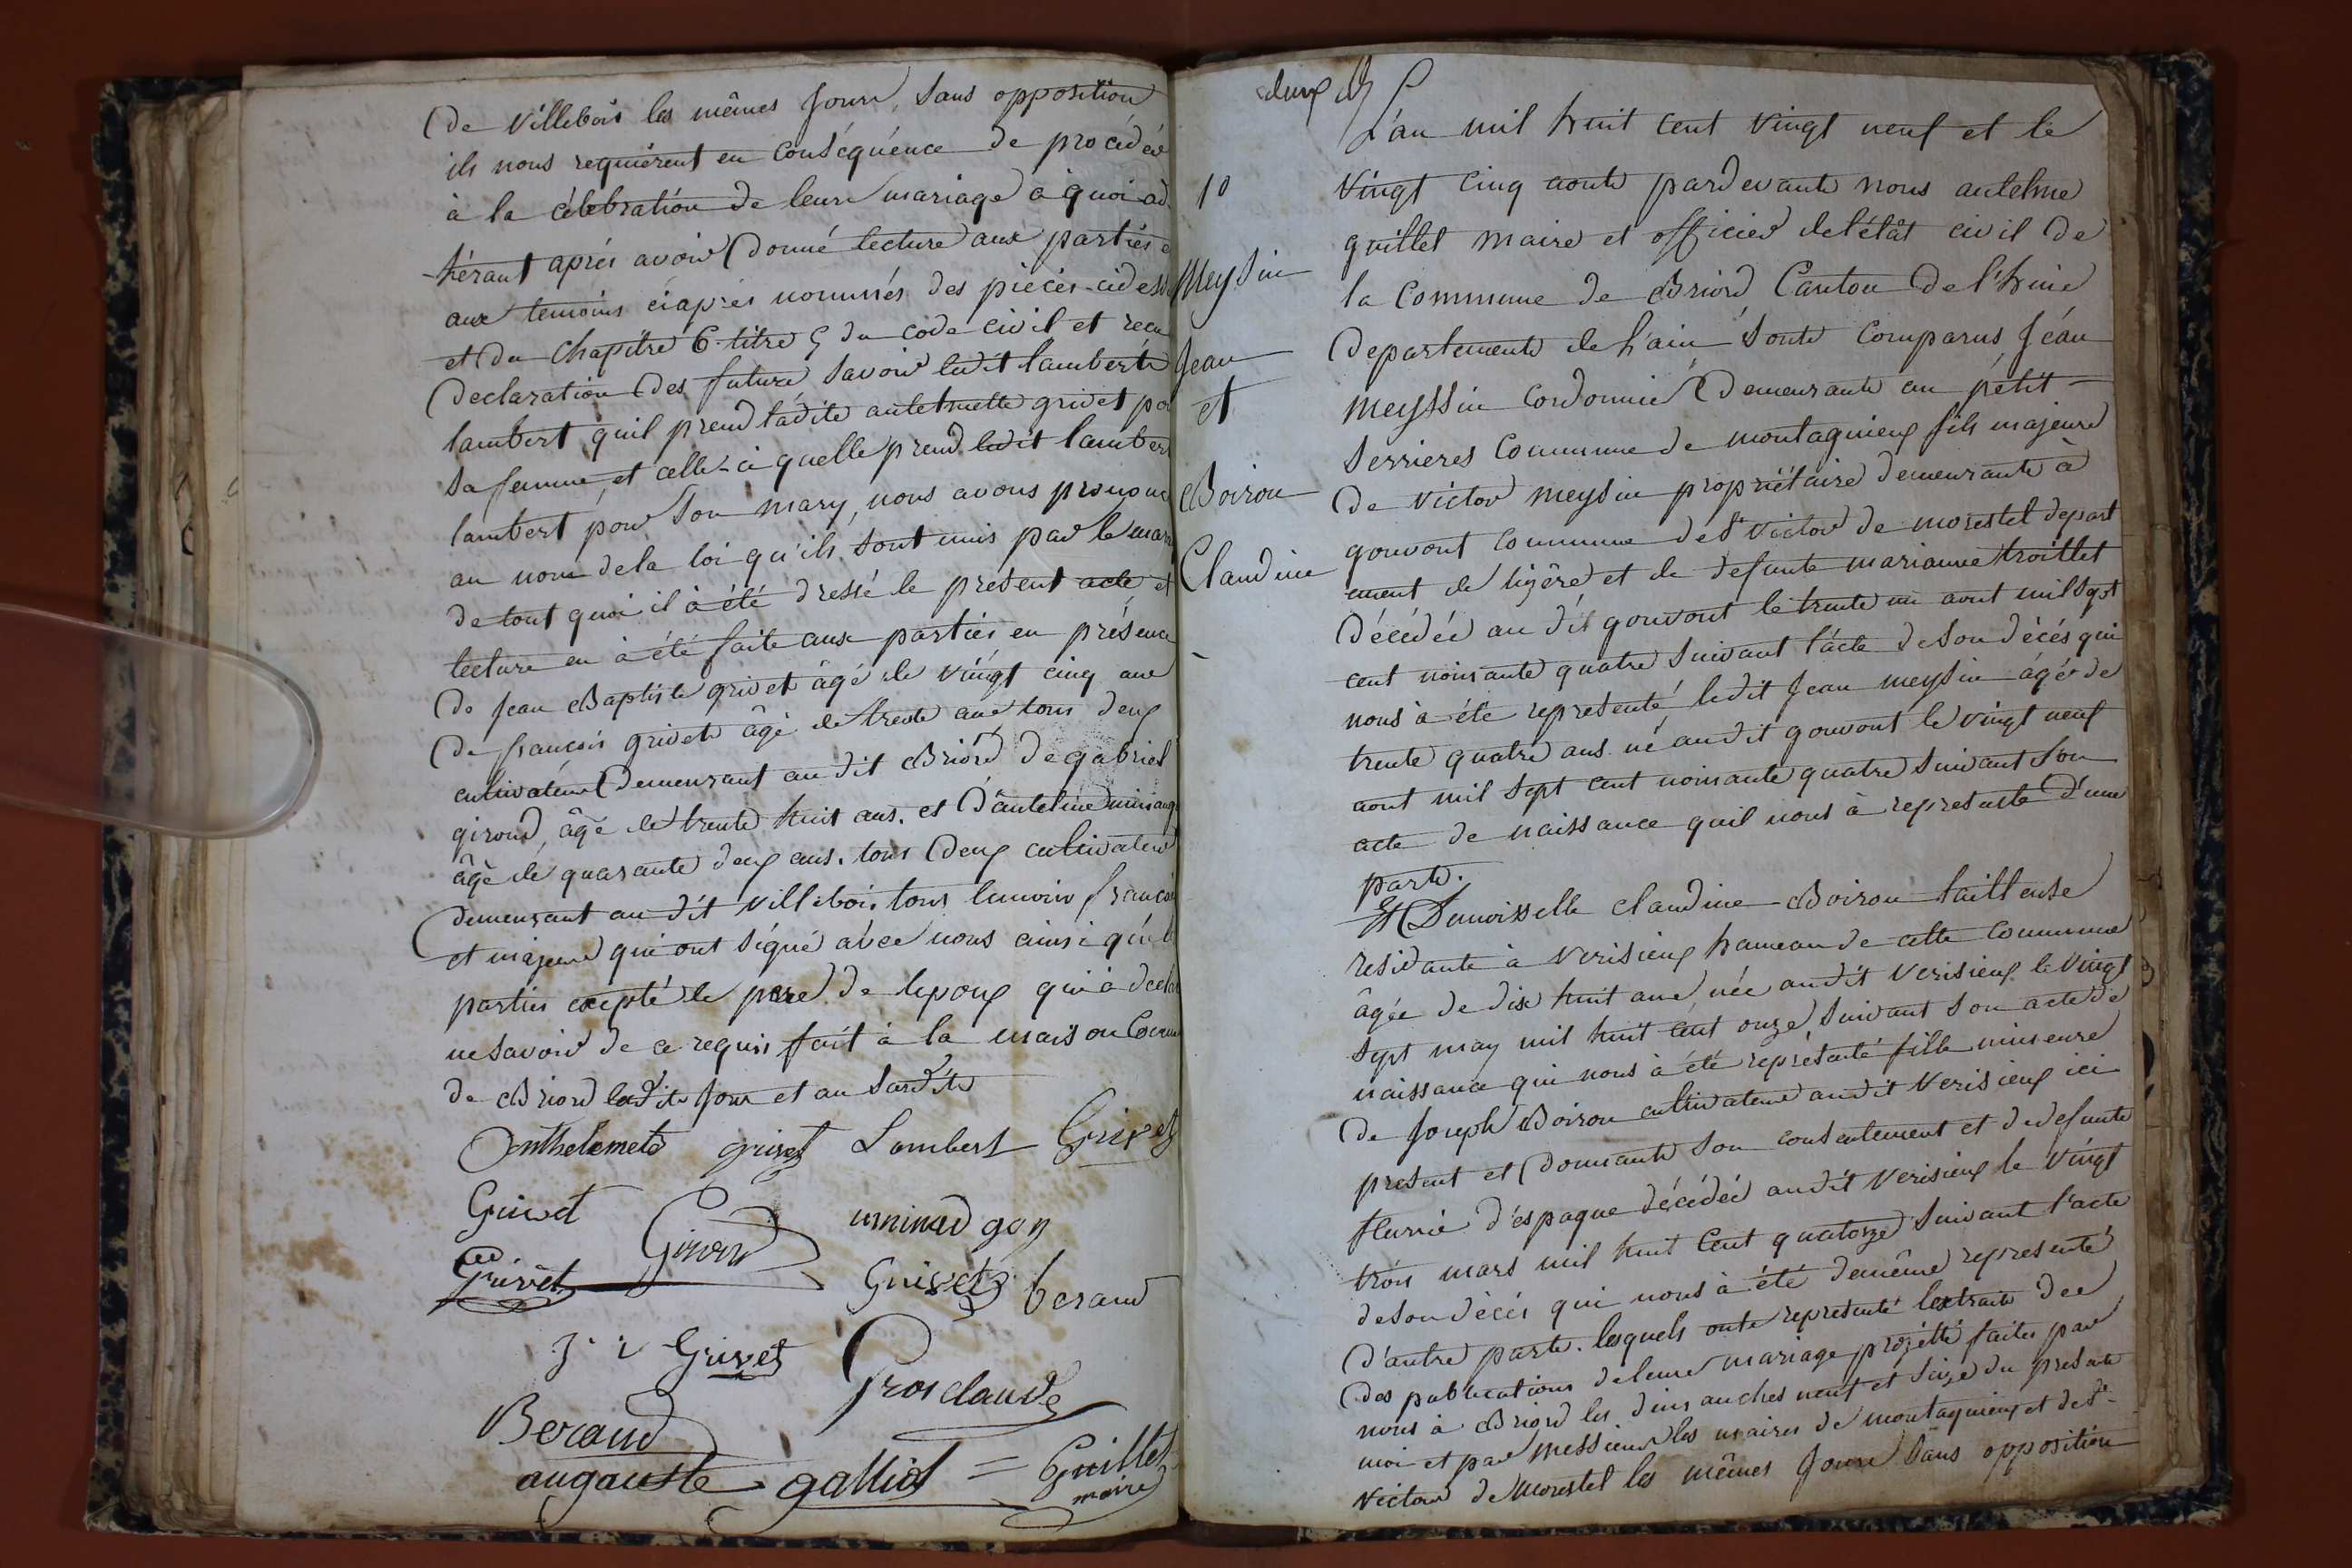 de villebois les mêmes Jours, sans opposition
ils nous requiérent en conséquénce de procédér
à la célébration de leurs mariage à quoi ad
-hérant aprés avoir donné lecture aux parties e
aux temoins ciaprés nommés des pièces cidess
et du chapitre 6 titre 5 du code civil et recu
declaration des futurs savoir ledit lambert
lambert quil prend ladite antelmette grivet po
sa femme, et celle-ci quelle prend ledit lamber
lambert pour son mary, nous avons prononc
au nom dela loi qu'ils sont unis par le mar
de tout quoi il à été dressé le present acte et
lecture en à été faite aux parties en présence
de Jean Baptiste grivet âgé de vingt cinq ans
de francois grivet âgé de trente ans tous deux
cultivateurs demeurant audit Briord de gabriel
giroud, âgé de trente huit ans. et d'antelme
âgé de quarante deux ans. tous deux cultivateur
demeurant au dit villebois tous temoins francois
et majeurs qui ont signé avec nous ainsi que le
parties excepté le pere de lepoux qui à decla
ne savoir de ce requis fait à la maison Comm
de Briord ledit Jour et an susdits
Anthelemete grivet Lambert Grivet
Grivet Girou minad goy
Grivet Grivet beraud
J. Grivet Grosclaude
Beraud
augauste galliot = Guillet
maire
deux
L'an mil huit cent vingt neuf et le
10 vingt cinq aoute pardevante nous antelme
guillet maire et officier del'état civil de
Meysin la Commune de Briord Canton de l'huie
Jean departemente de l'ain sonte comparus Jéan
et meyssin Cordonnié demeurante au pétit
serrieres Commune de montagnieux fils majeure
Boiron de victor meysin propriétaire demeurante à
gouvont commune de St victor de morestel depart
Claudine ement de lizêre et de defunte marianne troillet
décédée au dit gouvont le trente un aout mil sept
cent noinante quatre suivant l'acte de son décés qui
nous à été representé, ledit Jean meysin âgée de
trente quatre ans né audit gouvont le vingt neuf
aout mil sept cent noinante quatre suivant son
acte de naissance quil nous à represente d'une
parte.
Et Demoisselle claudine Boiron tailleuse
residante à verisieux hameau de cette commune
âgée de dix huit ans, née audit verisieux le vingt
sept may mil huit cent onze suivant son acte de
naissance qui nous à été représenté fille mineure
de Joseph Boiron cultivateur audit Verisieux ici
present et donnante son consentement et de defunte
fleurie d'espaque décédée audit Verisieux le vingt
trois mars mil huit Cent quatorze suivant l'acte
de son décés qui nous à été demême representé
d'autre parte. lesquels onte representé lextraits des
des publications deleurs mariage projétté faites par
nous à Briord les dimanches neuf et seize du presente
moi et par messieurs les maires de montagnieux et de St
victor de Morestel les mêmes Jours sans opposition